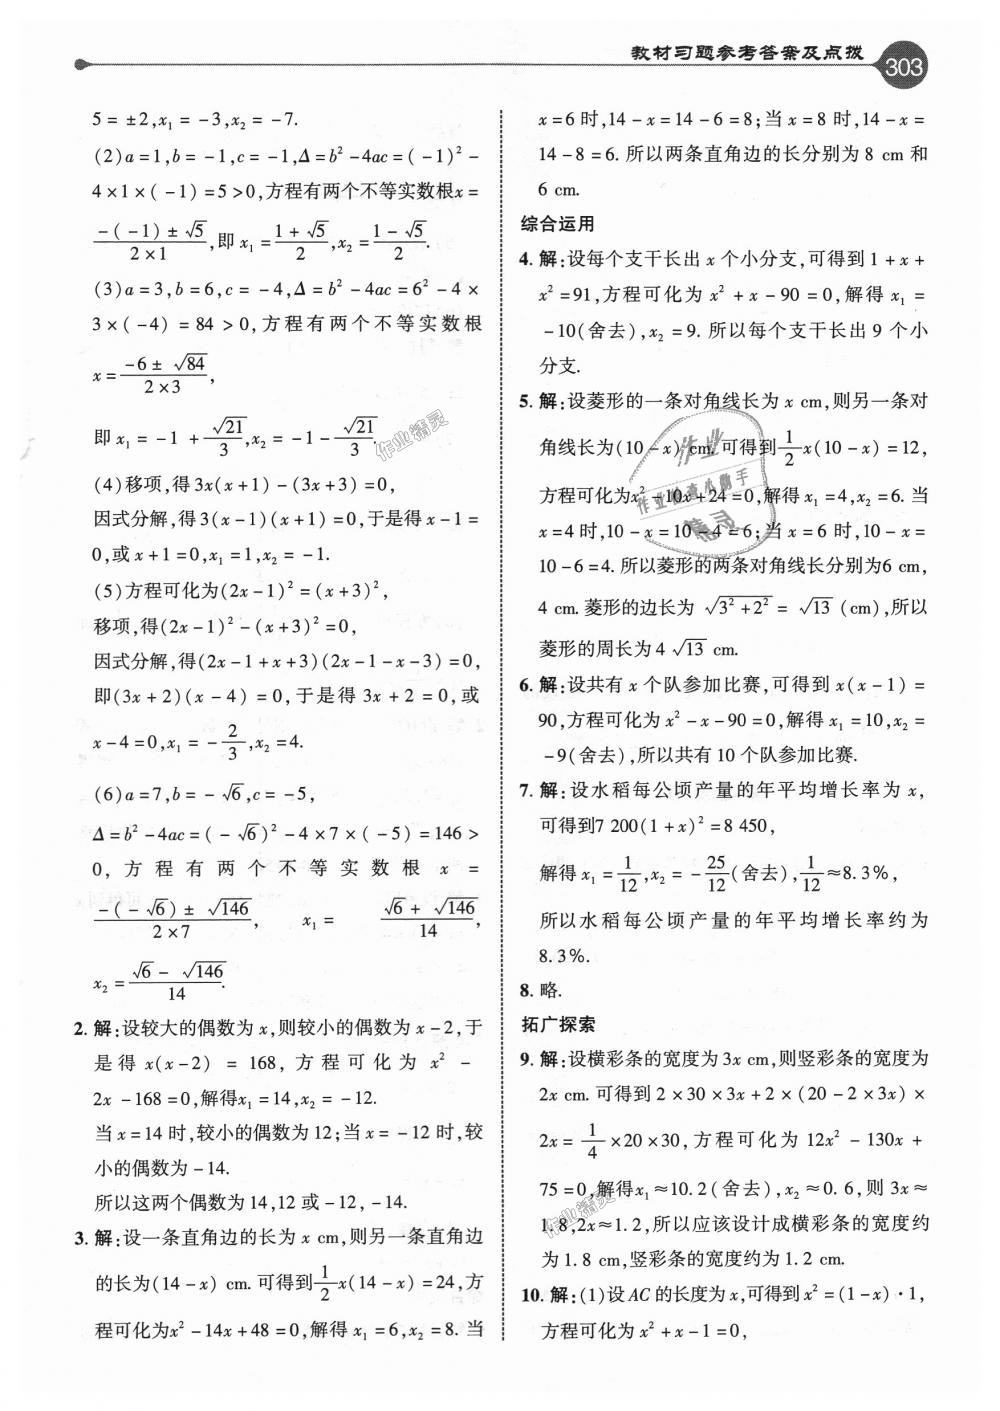 教材习题参考答案及点拨
303
5=±2,x₁=-3,x₂=-7.
(2)a=1,b=-1,c=-1,Δ=b²-4ac=(-1)²-
4×1×(-1)=5>0,方程有两个不等实数根x=
\frac{-(-1)±√5}{2×1},即x₁=\frac{1+√5}{2},x₂=\frac{1-√5}{2}.
(3)a=3,b=6,c=-4,Δ=b²-4ac=6²-4×
3×(-4)=84>0,方程有两个不等实数根
x=\frac{-6±√84}{2×3},
即x₁=-1+\frac{√21}{3},x₂=-1-\frac{√21}{3}.
(4)移项,得3x(x+1)-(3x+3)=0,
因式分解,得3(x-1)(x+1)=0,于是得x-1=
0,或x+1=0,x₁=1,x₂=-1.
(5)方程可化为(2x-1)²=(x+3)²,
移项,得(2x-1)²-(x+3)²=0,
因式分解,得(2x-1+x+3)(2x-1-x-3)=0,
即(3x+2)(x-4)=0,于是得3x+2=0,或
x-4=0,x₁=-\frac{2}{3},x₂=4.
(6)a=7,b=-√6,c=-5,
Δ=b²-4ac=(-√6)²-4×7×(-5)=146>
0,方程有两个不等实数根x=
\frac{-(-√6)±√146}{2×7},x₁=\frac{√6+√146}{14},
x₂=\frac{√6-√146}{14}.
2.解:设较大的偶数为x,则较小的偶数为x-2,于
是得x(x-2)=168,方程可化为x²-
2x-168=0,解得x₁=14,x₂=-12.
当x=14时,较小的偶数为12;当x=-12时,较
小的偶数为-14.
所以这两个偶数为14,12或-12,-14.
3.解:设一条直角边的长为x cm,则另一条直角边
的长为(14-x) cm.可得到\frac{1}{2}x(14-x)=24,方
程可化为x²-14x+48=0,解得x₁=6,x₂=8.当
x=6时,14-x=14-6=8;当x=8时,14-x=
14-8=6.所以两条直角边的长分别为8 cm和
6 cm.
综合运用
4.解:设每个支干长出x个小分支,可得到1+x+
x²=91,方程可化为x²+x-90=0,解得x₁=
-10(舍去),x₂=9.所以每个支干长出9个小
分支.
5.解:设菱形的一条对角线长为x cm,则另一条对
角线长为(10-x) cm.可得到\frac{1}{2}x(10-x)=12,
方程可化为x²-10x+24=0,解得x₁=4,x₂=6.当
x=4时,10-x=10-4=6;当x=6时,10-x=
10-6=4.所以菱形的两条对角线长分别为6 cm,
4 cm.菱形的边长为√(3²+2²)=√13 (cm),所以
菱形的周长为4√13 cm.
6.解:设共有x个队参加比赛,可得到x(x-1)=
90,方程可化为x²-x-90=0,解得x₁=10,x₂=
-9(舍去),所以共有10个队参加比赛.
7.解:设水稻每公顷产量的年平均增长率为x,
可得到7 200(1+x)²=8 450,
解得x₁=\frac{1}{12},x₂=-\frac{25}{12}(舍去),\frac{1}{12}≈8.3%,
所以水稻每公顷产量的年平均增长率约为
8.3%.
8.略.
拓广探索
9.解:设横彩条的宽度为3x cm,则竖彩条的宽度为
2x cm.可得到2×30×3x+2×(20-2×3x)×
2x=\frac{1}{4}×20×30,方程可化为12x²-130x+
75=0,解得x₁≈10.2(舍去),x₂≈0.6,则3x≈
1.8,2x≈1.2,所以应该设计成横彩条的宽度约
为1.8 cm,竖彩条的宽度约为1.2 cm.
10.解:(1)设AC的长度为x,可得到x²=(1-x)·1,
方程可化为x²+x-1=0,
作业精灵
作业精灵